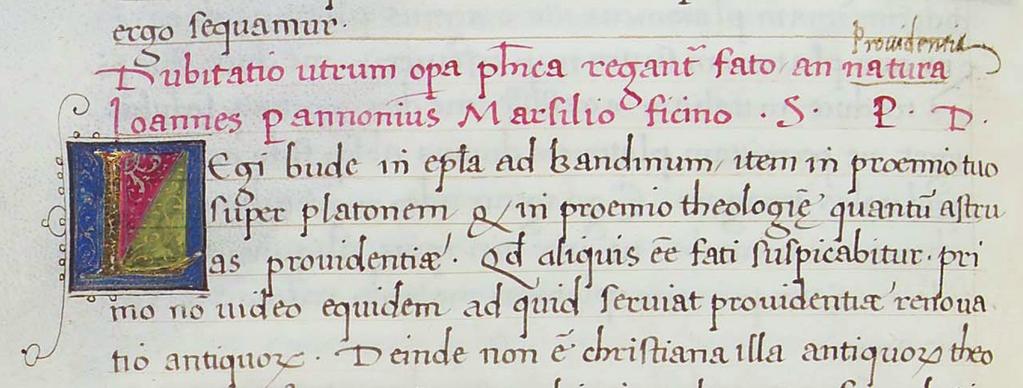 ergo sequamur.
Prouidentia
Dubitatio utrum opa phīca regant̄ fato/ an natura
Ioannes Pannonius Marsilio ficino . S P. D.
LEgi bude in ep̄la ad bandinum/ item in proemio tuo
super platonem & in proemio theologię quantū astru
as prouidentiæ. Qd̄ aliquis eē̄ fati suspicabitur. pri
mo nō uideo equidem ad quid seruiat prouidentiæ renoua
tio antiquoꝝ. Deinde non ē christiana illa antiquoꝝ theo